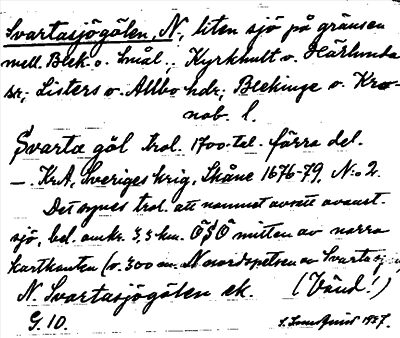 Svartasjögölen, N., liten sjö på gränsen
mell. Blek. o. Smål., Kyrkhult o. Härlunda
sr; Listers o. Allbo hdr; Blekinge o. Kro-
nob. l.
Svarta göl trol. 1700-tel. förra del.
– KrA, Sveriges krig, Skåne 1676-79, N:o 2.
Det synes trol. att namnet avsett ovanst.
sjö, bel. omkr. 3,3 km. ÖSÖ mitten av norra
kartkanten (o. 300 m. N nordspetsen av Svartasj
N. Svartasjögölen ek. (Vänd!)
G. 10. 1937.